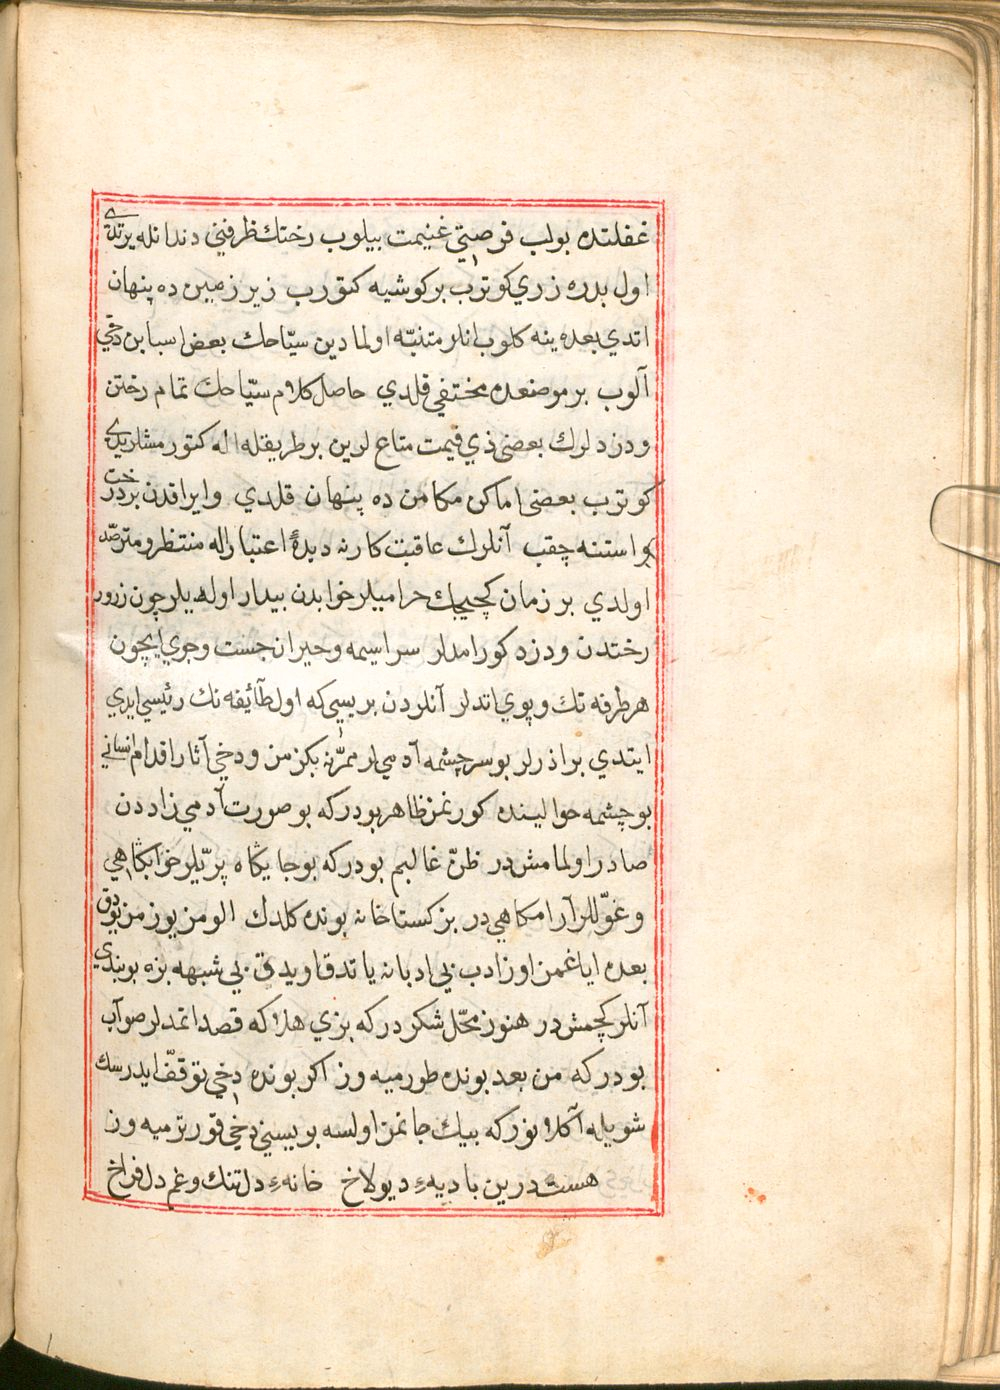 غفلتده بولب فرصتي غنيمت بيلوب رختك ظرفني دندانله يرتدي
اول بدره زري كوترب بر كوشيه كتورب زير زمين ده پنهان
اتدي بعده ينه كلوب انلر متنبّه اولمادين سيّاحك بعض اسبابن دخي
آلوب بر موضعده مختفي قلدي حاصل كلام سيّاحك تمام رختن
و دزدلرك بعضی ذي قيمت متاع لرين بر طريقله اله كتورمشلريدي
كوترب بعضی اماكن مكامن ده پنهان قلدي و ايراقدن بر درخت
اوستنه چقب آنلرك عاقبت كارنه ديدهٔ اعتبار اله منتظر و مترصّد
اولدي بر زمان كچيجك حراميلر خوابدن بيدار اولديلر چون زرو
رختدن و دزد كورامدلر سراسيمه و حيران جست و جوي ايچون
هر طرفه تك و پوي اتدلر آنلردن بريسي كه اول طآئفه نك رئيسي ايدي
ايتدي براذرلر بو سر چشمه آدمي لر ممرّنه بكزمن و دخي آثار اقدام انساني
بو چشمه حوالينده كورنمز ظاهر بودر كه بو صورت آدمي زاددن
صادر اولمامشدر ظنّ غالبم بودر كه بو جايكاه پريّلر خوابكاهي
و غوّللر آرامكاهي در بز كستاخانه بونده كلدك المزيوزمز يودق
بعده اياغمز اوزادب بي ادبانه ياتدق اويدق بي شبهه بزه بو بندي
آنلر كچمشدر هنوز محلّ شكردر كه بزي هلاكه قصد اتمدلر صوآب
بودر كه من بعد بونده طورميه وز اكر بونده دخي توقفّ ايدرسك
شويله آكلا نور كه بيك جانمز اولسه بريسني دخي قورترميه وز
هست درين باديهء ديولاخ خانهء دل تنك و غم دل فراخ